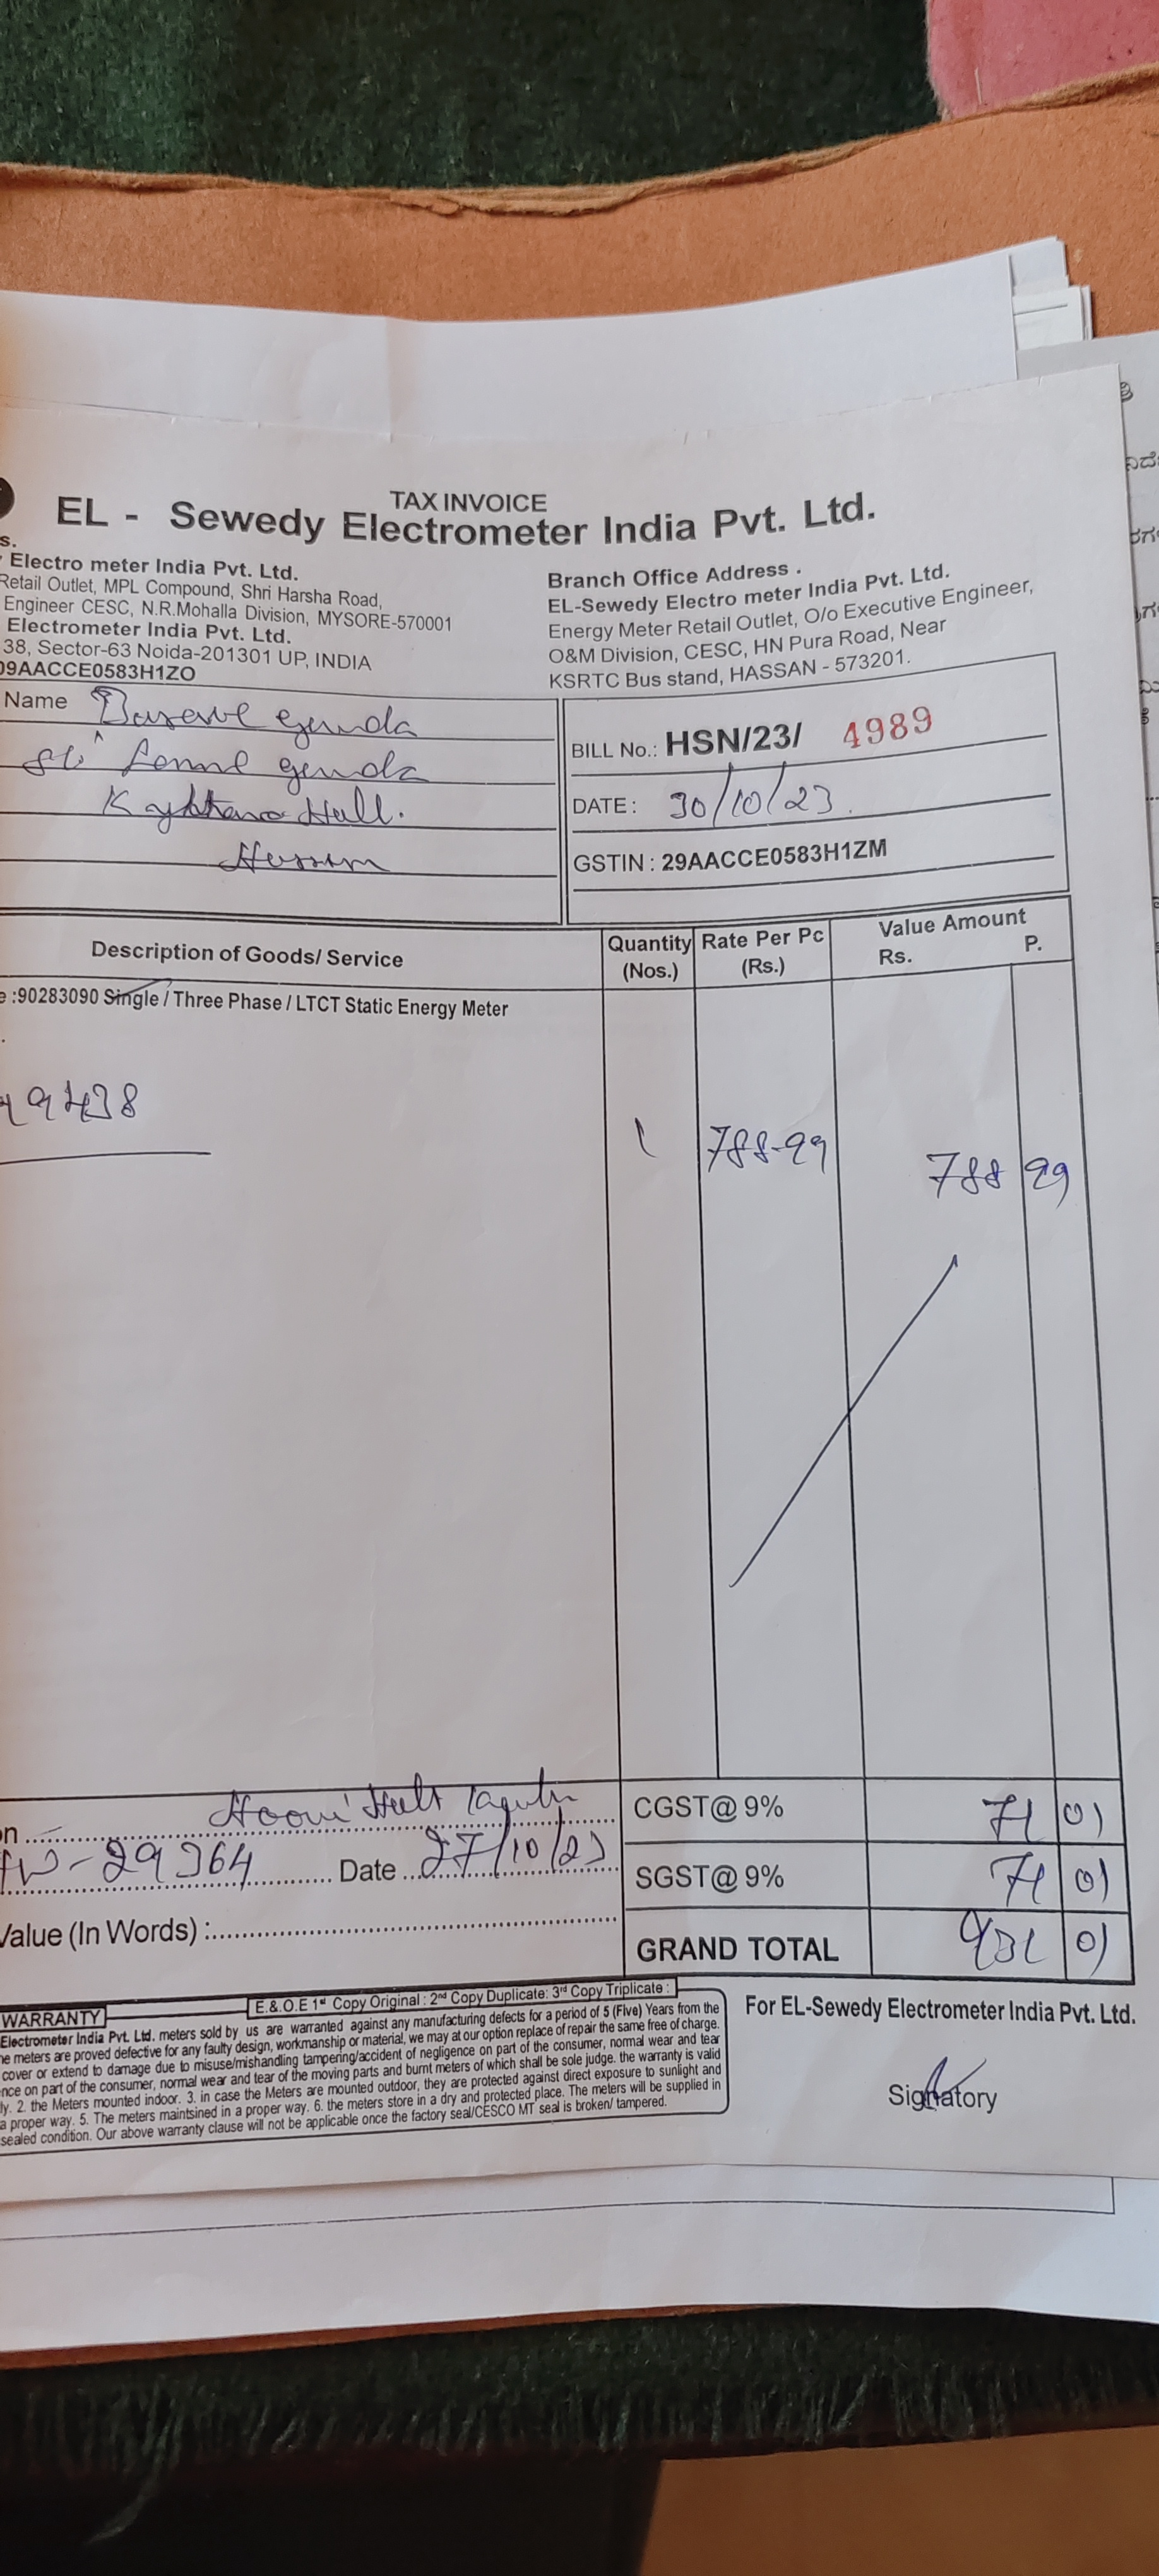 TAX INVOICE
EL - Sewedy Electrometer India Pvt. Ltd.
s.
Electro meter India Pvt. Ltd.
Retail Outlet, MPL Compound, Shri Harsha Road,
Engineer CESC, N.R.Mohalla Division, MYSORE-570001
Electrometer India Pvt. Ltd.
38, Sector-63 Noida-201301 UP, INDIA
09AACCE0583H1ZO
Branch Office Address .
EL-Sewedy Electro meter India Pvt. Ltd.
Energy Meter Retail Outlet, O/o Executive Engineer,
O&M Division, CESC, HN Pura Road, Near
KSRTC Bus stand, HASSAN - 573201.
Name
BILL No.: HSN/23/ 4989
DATE : 30/10/23
GSTIN : 29AACCE0583H1ZM
Description of Goods/ Service Quantity (Nos.) Rate Per Pc (Rs.) Value Amount Rs. P.
e :90283090 Single / Three Phase / LTCT Static Energy Meter
99438
1 788-99 788 99
CGST@ 9% 71 01
n
29364 Date 27/10/23
SGST@ 9% 71 01
Value (In Words) :
GRAND TOTAL 931 01
E.&.O.E 1st Copy Original : 2nd Copy Duplicate: 3rd Copy Triplicate :
WARRANTY
Electrometer India Pvt. Ltd. meters sold by us are warranted against any manufacturing defects for a period of 5 (Five) Years from the
e meters are proved defective for any faulty design, workmanship or material, we may at our option replace of repair the same free of charge.
cover or extend to damage due to misuse/mishandling tampering/accident of negligence on part of the consumer, normal wear and tear
nce on part of the consumer, normal wear and tear of the moving parts and burnt meters of which shall be sole judge. the warranty is valid
ly. 2. the Meters mounted indoor. 3. in case the Meters are mounted outdoor, they are protected against direct exposure to sunlight and
a proper way. 5. The meters maintsined in a proper way. 6. the meters store in a dry and protected place. The meters will be supplied in
sealed condition. Our above warranty clause will not be applicable once the factory seal/CESCO MT seal is broken/ tampered.
For EL-Sewedy Electrometer India Pvt. Ltd.
Signatory